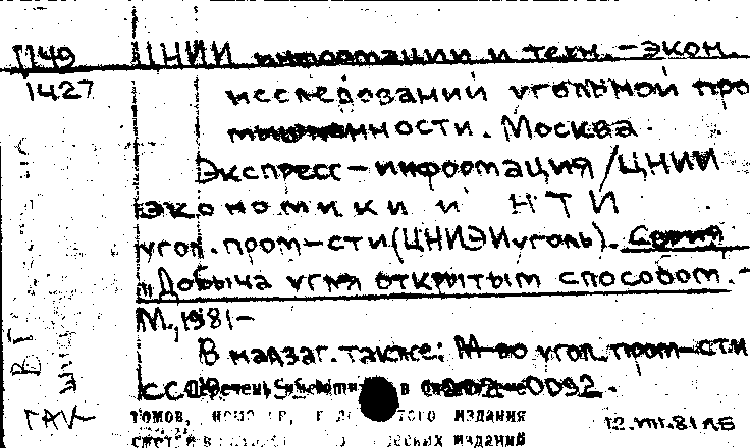 П149 ЦНИИ информации и техн.-экон.
1427 исследований угольной про
мышленности. Москва.
Экспресс-информация/ЦНИИ
экономики и НТИ
угол. пром-сти (ЦНИЭИуголь). Серия
"Добыча угля открытым способом.-
М., 1981-
В надзаг. также: М-во угол. пром-сти
СССР. 0092.
томов, издания
изданий
12.VIII.81 ЛБ